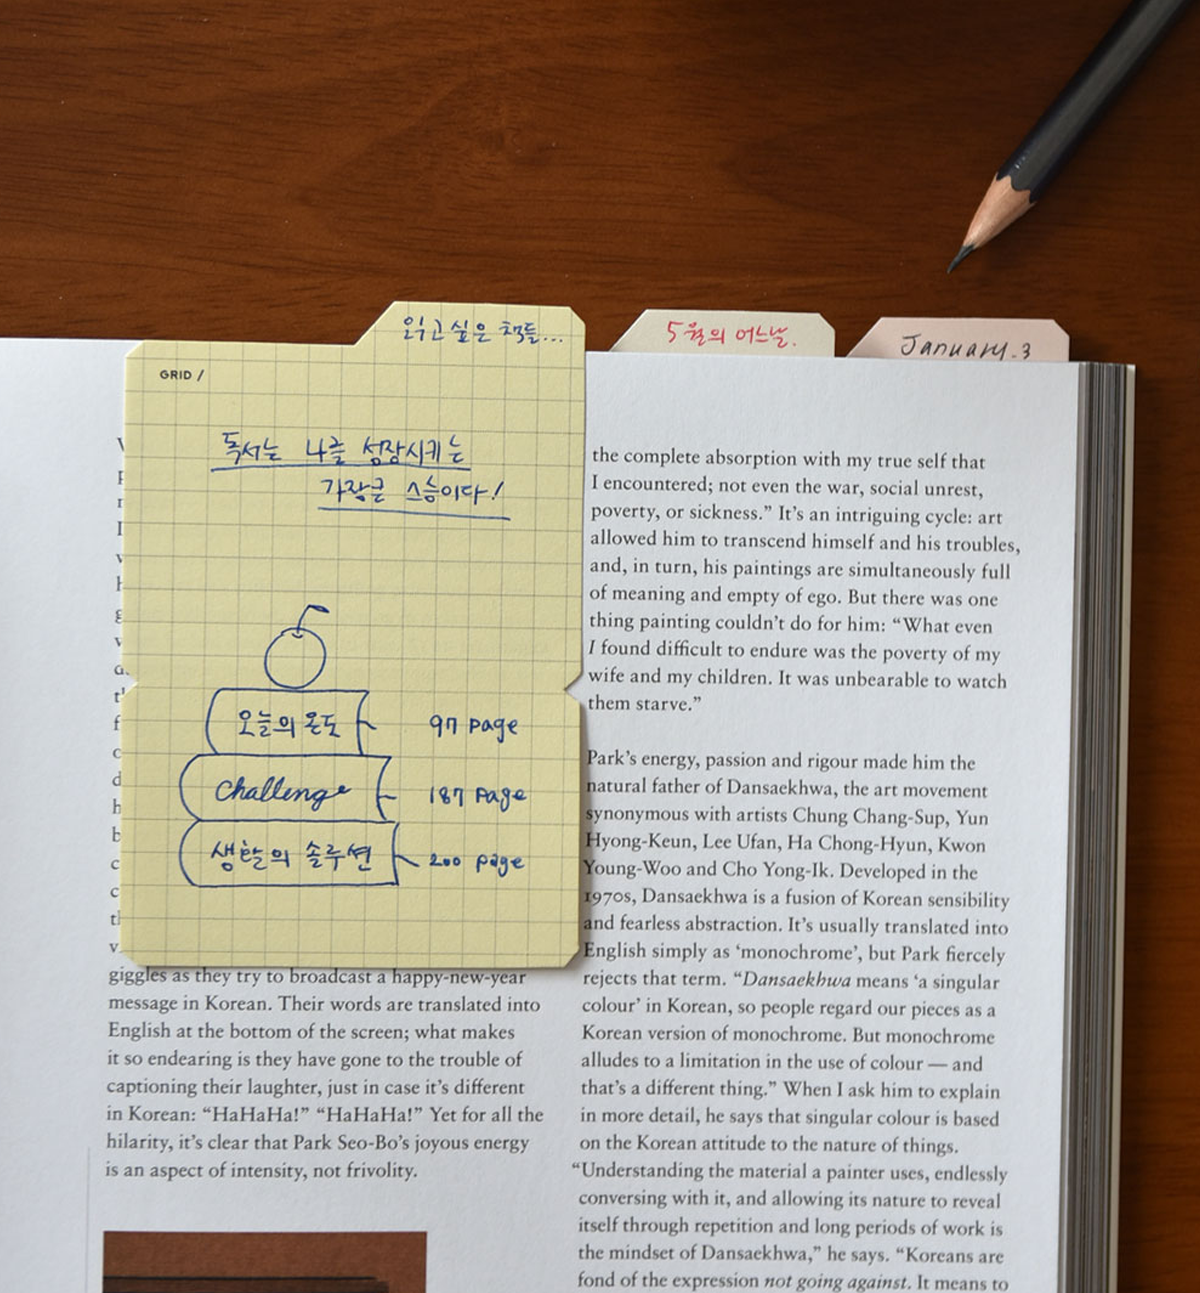 읽고 싶은 책들...
5월의 어느날.
January.3
GRID /
독서는 나를 성장시키는
가장큰 스승이다!
오늘의 온도 97 page
Challenge 187 page
생활의 솔루션 200 page
giggles as they try to broadcast a happy-new-year
message in Korean. Their words are translated into
English at the bottom of the screen; what makes
it so endearing is they have gone to the trouble of
captioning their laughter, just in case it’s different
in Korean: “HaHaHa!” “HaHaHa!” Yet for all the
hilarity, it’s clear that Park Seo-Bo’s joyous energy
is an aspect of intensity, not frivolity.
the complete absorption with my true self that
I encountered; not even the war, social unrest,
poverty, or sickness.” It’s an intriguing cycle: art
allowed him to transcend himself and his troubles,
and, in turn, his paintings are simultaneously full
of meaning and empty of ego. But there was one
thing painting couldn’t do for him: “What even
I found difficult to endure was the poverty of my
wife and my children. It was unbearable to watch
them starve.”
Park’s energy, passion and rigour made him the
natural father of Dansaekhwa, the art movement
synonymous with artists Chung Chang-Sup, Yun
Hyong-Keun, Lee Ufan, Ha Chong-Hyun, Kwon
Young-Woo and Cho Yong-Ik. Developed in the
1970s, Dansaekhwa is a fusion of Korean sensibility
and fearless abstraction. It’s usually translated into
English simply as ‘monochrome’, but Park fiercely
rejects that term. “Dansaekhwa means ‘a singular
colour’ in Korean, so people regard our pieces as a
Korean version of monochrome. But monochrome
alludes to a limitation in the use of colour — and
that’s a different thing.” When I ask him to explain
in more detail, he says that singular colour is based
on the Korean attitude to the nature of things.
“Understanding the material a painter uses, endlessly
conversing with it, and allowing its nature to reveal
itself through repetition and long periods of work is
the mindset of Dansaekhwa,” he says. “Koreans are
fond of the expression not going against. It means to